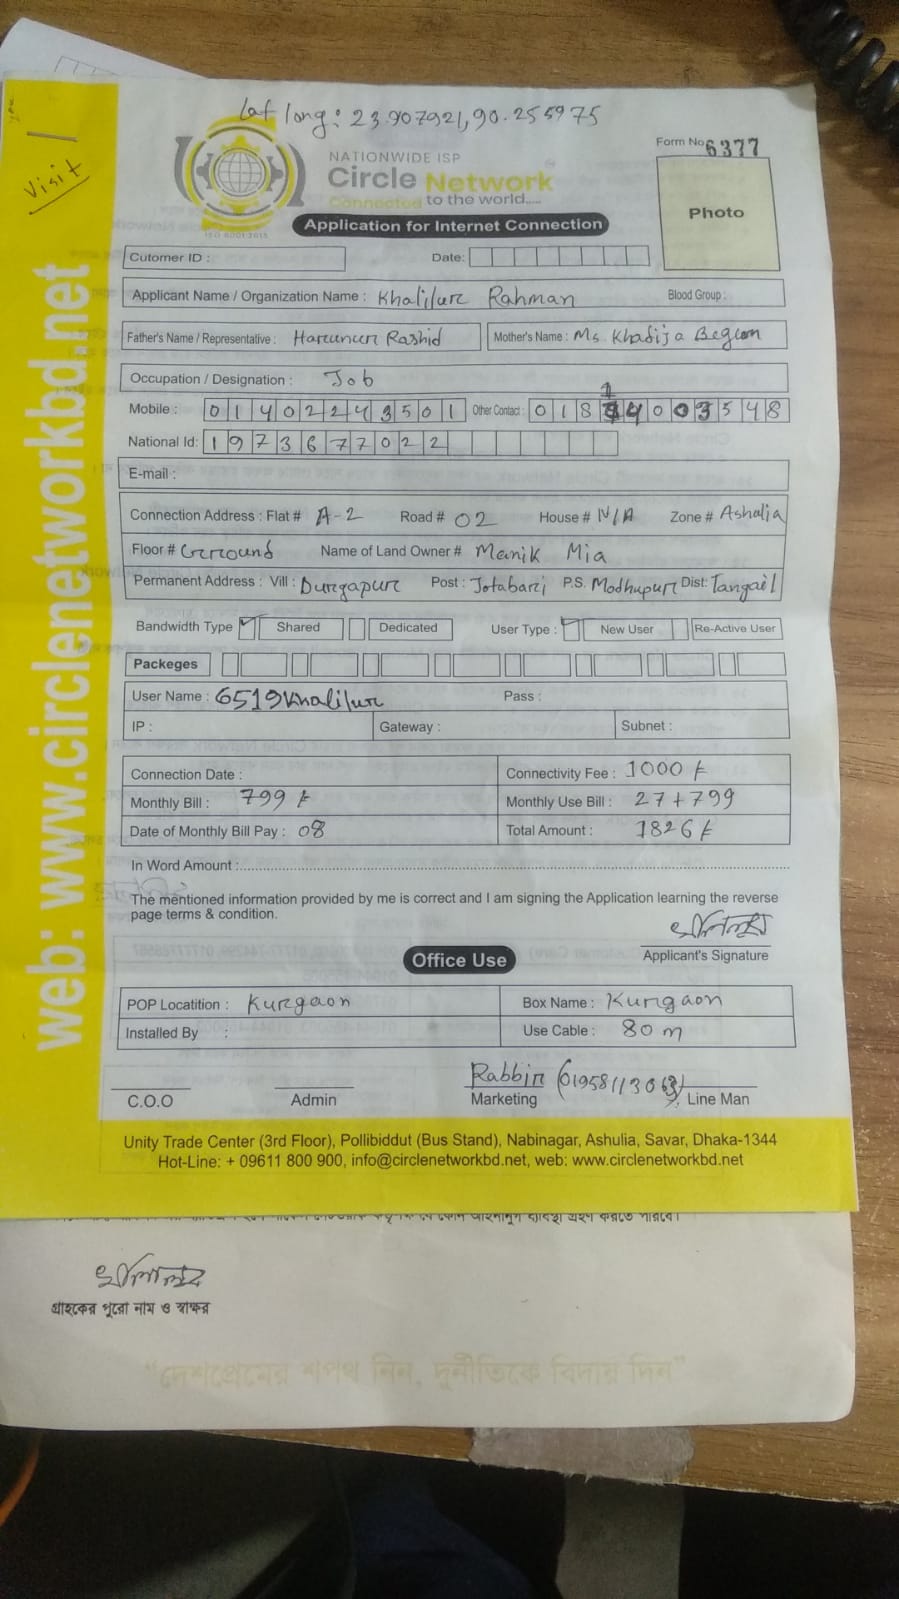 Lat long: 23.907921,90.255975
Visit
NATIONWIDE ISP
Circle Network
Connected to the world.....
ISO 9001:2015
Form No 6377
Photo
Application for Internet Connection
Cutomer ID : Date:
Applicant Name / Organization Name : Khalilur Rahman Blood Group :
Father's Name / Representative : Harunur Rashid Mother's Name : Ms. Khadija Begum
Occupation / Designation : Job
Mobile : 01402243501 Other Contact : 01814003548
National Id: 1973677022
E-mail :
Connection Address : Flat # A-2 Road # 02 House # N/A Zone # Ashalia
Floor # Ground Name of Land Owner # Manik Mia
Permanent Address : Vill : Durgapur Post : Jotabari P.S. Modhupur Dist: Tangail
Bandwidth Type Shared Dedicated User Type : New User Re-Active User
Packeges
User Name : 6519khalilur Pass :
IP : Gateway : Subnet :
Connection Date : Connectivity Fee : 1000 /-
Monthly Bill : 799 /- Monthly Use Bill : 27+799
Date of Monthly Bill Pay : 08 Total Amount : 1826/-
In Word Amount :
The mentioned information provided by me is correct and I am signing the Application learning the reverse
page terms & condition.
খলিলুর
Applicant's Signature
Office Use
POP Locatition : Kurgaon Box Name : Kurgaon
Installed By : Use Cable : 80 m
Rabbir
C.O.O Admin Marketing Line Man
Unity Trade Center (3rd Floor), Pollibiddut (Bus Stand), Nabinagar, Ashulia, Savar, Dhaka-1344
Hot-Line: + 09611 800 900, info@circlenetworkbd.net, web: www.circlenetworkbd.net
web: www.circlenetworkbd.net
খলিলুর
গ্রাহকের পুরো নাম ও স্বাক্ষর
“দেশপ্রেমের শপথ নিন, দুর্নীতিকে বিদায় দিন”